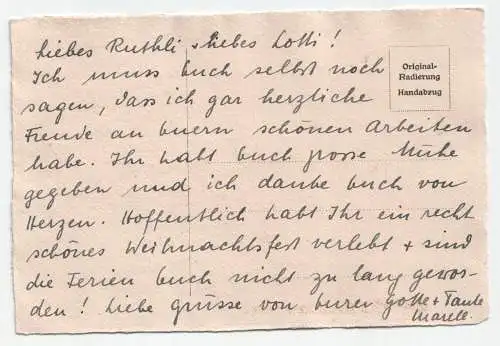 Liebes Ruthli + liebes Lotti!
Ich muss Euch selbst noch
sagen, dass ich gar herzliche
Freude an Euern schönen Arbeiten
habe. Ihr habt Euch grosse Mühe
gegeben und ich danke Euch von
Herzen. Hoffentlich habt Ihr ein recht
schönes Weihnachtsfest verlebt + sind
die Ferien Euch nicht zu lang gewor-
den! Liebe Grüsse von Eurer Gotte + Tante
Original-
Radierung
Handabzug